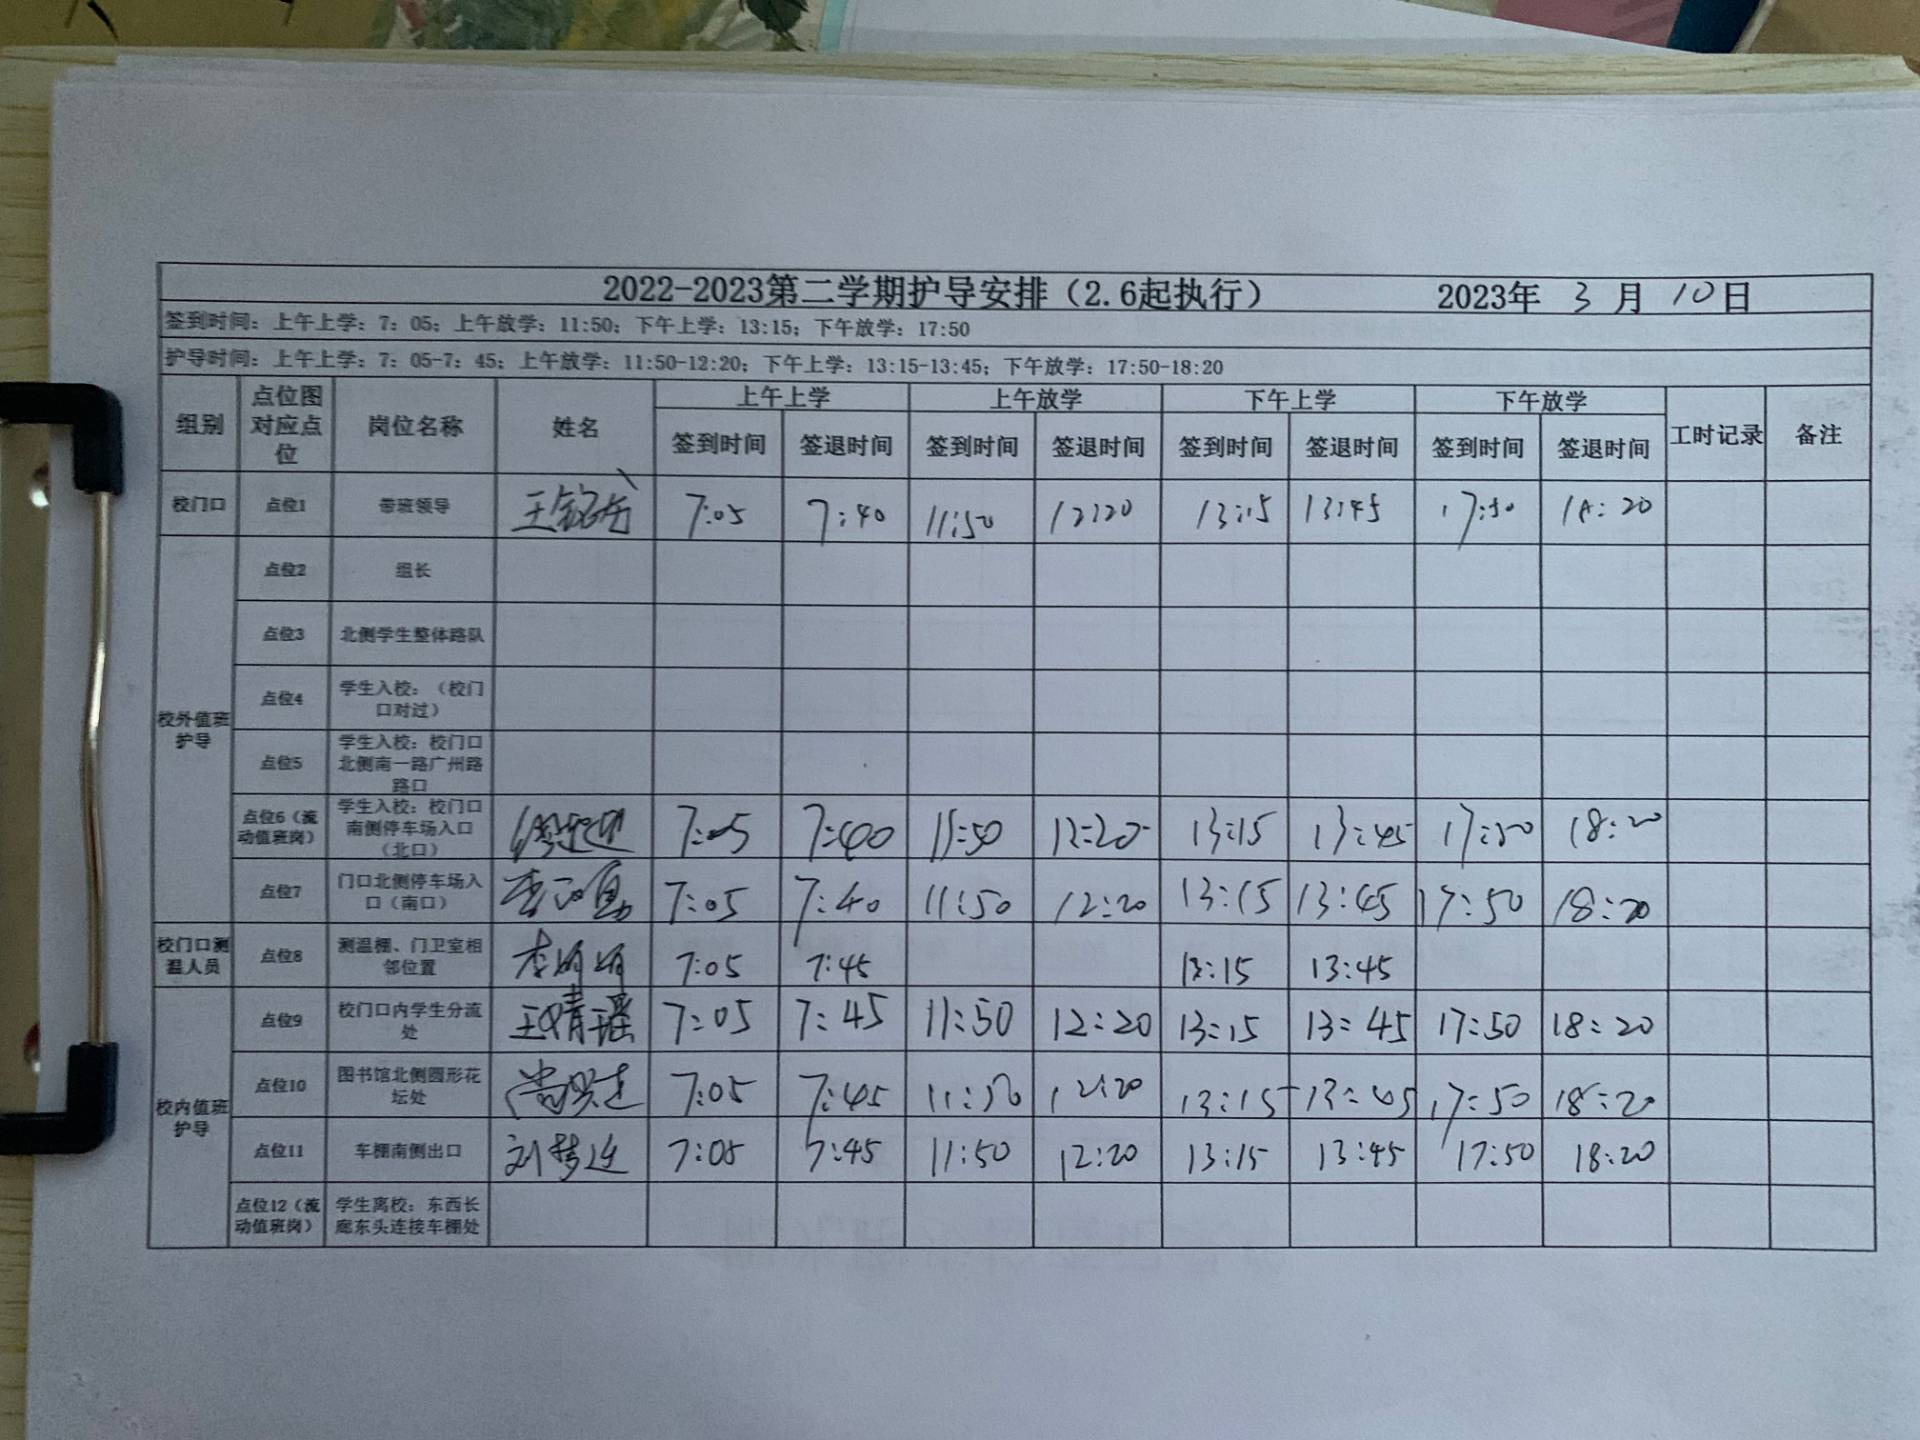 2022-2023第二学期护导安排（2.6起执行） 2023年 3 月 10日
签到时间：上午上学：7：05；上午放学：11:50；下午上学：13:15；下午放学：17:50
护导时间：上午上学：7：05-7：45；上午放学：11:50-12:20；下午上学：13:15-13:45；下午放学：17:50-18:20
组别 点位图对应点位 岗位名称 姓名 上午上学 上午放学 下午上学 下午放学 工时记录 备注
签到时间 签退时间 签到时间 签退时间 签到时间 签退时间 签到时间 签退时间
校门口 点位1 带班领导 7:05 7:40 11:50 12:20 13:15 13:45 17:50 18:20
校外值班护导
点位2 组长
点位3 北侧学生整体路队
点位4 学生入校：（校门口对过）
点位5 学生入校：校门口北侧南一路广州路路口
点位6（流动值班岗） 学生入校：校门口南侧停车场入口（北口） 7:05 7:40 11:50 12:20 13:15 13:45 17:50 18:20
点位7 门口北侧停车场入口（南口） 7:05 7:40 11:50 12:20 13:15 13:45 17:50 18:20
校门口测温人员 点位8 测温棚、门卫室相邻位置 李娟娟 7:05 7:45 13:15 13:45
校内值班护导
点位9 校门口内学生分流处 王婧瑶 7:05 7:45 11:50 12:20 13:15 13:45 17:50 18:20
点位10 图书馆北侧圆形花坛处 7:05 7:45 11:50 12:20 13:15 13:45 17:50 18:20
点位11 车棚南侧出口 刘梦迪 7:05 7:45 11:50 12:20 13:15 13:45 17:50 18:20
点位12（流动值班岗） 学生离校：东西长廊东头连接车棚处